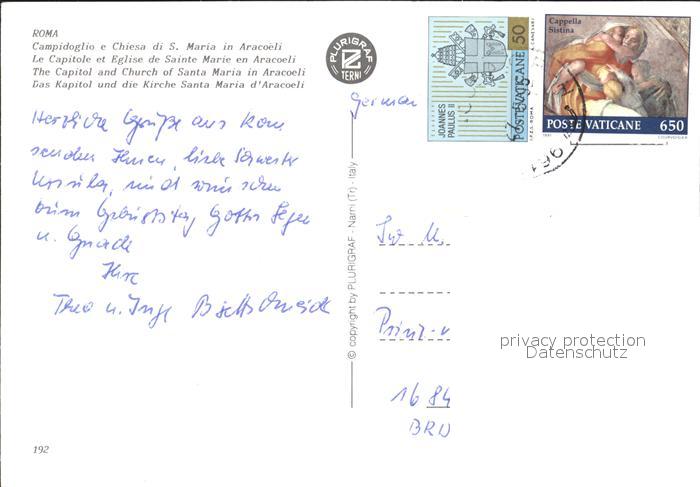 ROMA
Campidoglio e Chiesa di S. Maria in Aracoeli
Le Capitole et Eglise de Sainte Marie en Aracoeli
The Capitol and Church of Santa Maria in Aracoeli
Das Kapitol und die Kirche Santa Maria d'Aracoeli
Herzliche Grüße aus Rom
senden Ihnen, liebe Schwester
und wünschen
zum Geburtstag Gottes Segen
u. Gnade
Ihre
Theo u. Inge
192
PLURIGRAF
TERNI
© copyright by PLURIGRAF - Narni (Tr) - Italy
JOANNES PAULUS II
POSTE VATICANE 50
Cappella
Sistina
POSTE VATICANE 650
German
Prinz-
1684
BRD
privacy protection
Datenschutz